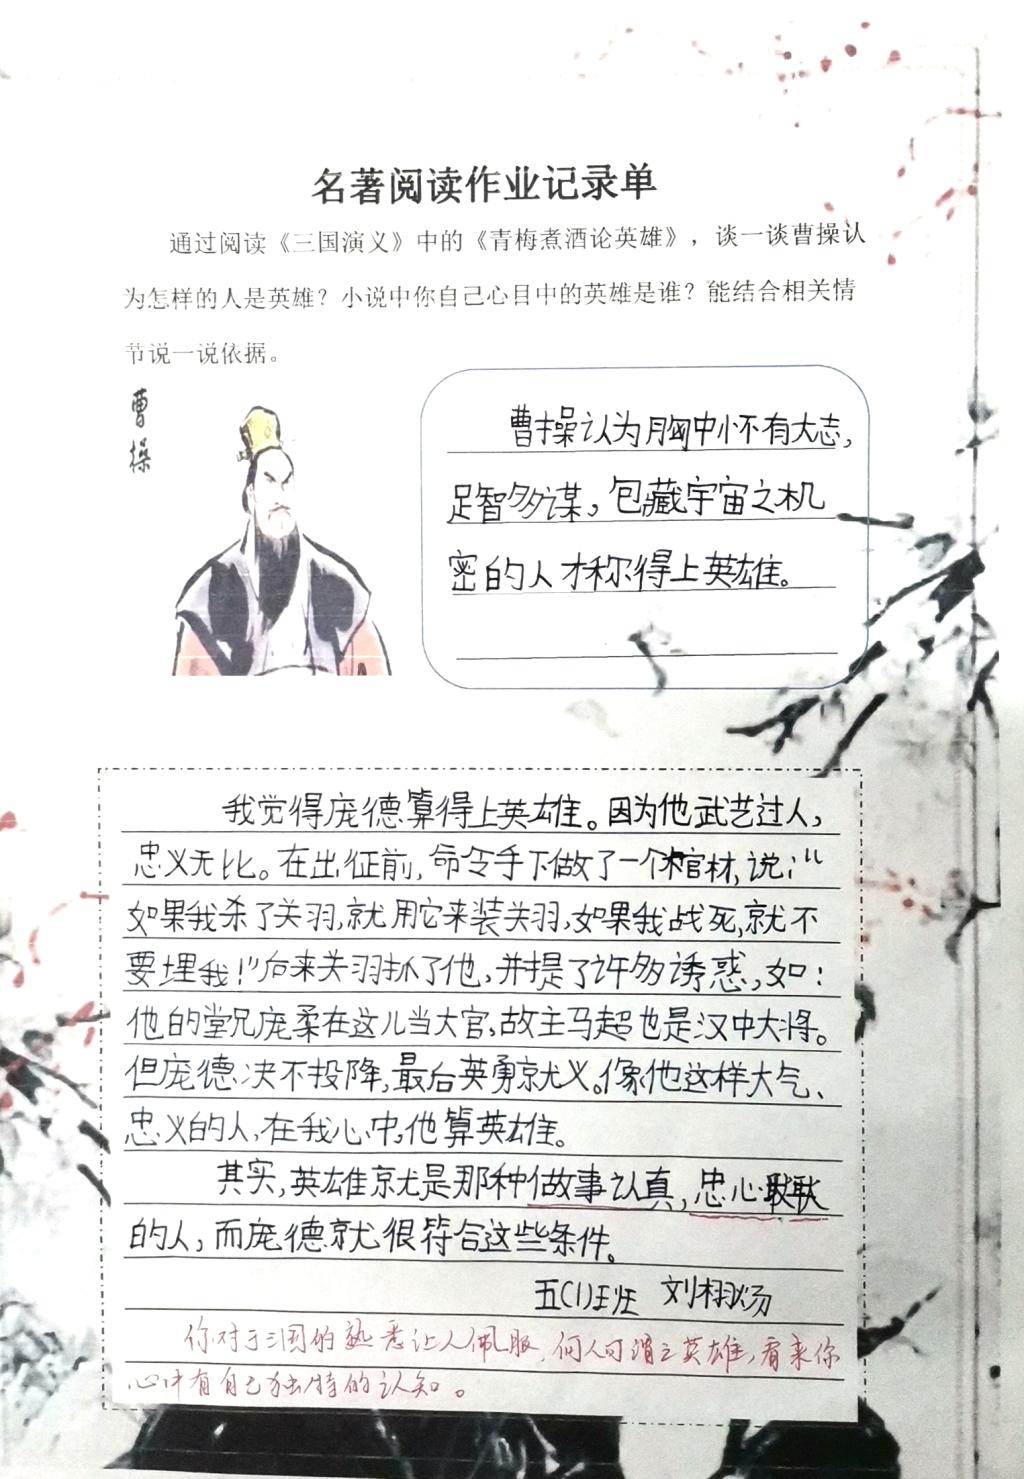 名著阅读作业记录单
通过阅读《三国演义》中的《青梅煮酒论英雄》，谈一谈曹操认
为怎样的人是英雄？小说中你自己心目中的英雄是谁？能结合相关情
节说一说依据。
曹操
曹操认为胸中怀有大志，
足智多谋，包藏宇宙之机
密的人才称得上英雄。
我觉得庞德算得上英雄。因为他武艺过人，
忠义无比。在出征前，命令手下做了一个棺材，说：“
如果我杀了关羽，就用它来装关羽，如果我战死，就不
要埋我！”后来关羽抓了他，并提了许多诱惑，如：
他的堂兄庞柔在这儿当大官，故主马超也是汉中大将。
但庞德决不投降，最后英勇就义。像他这样大气、
忠义的人，在我心中，他算英雄。
其实，英雄就是那种做故事认真，忠心耿耿
的人，而庞德就很符合这些条件。
五(1)班 刘栩炀
你对于三国的熟悉让人佩服，何人可谓之英雄，看来你
心中有自己独特的认知。